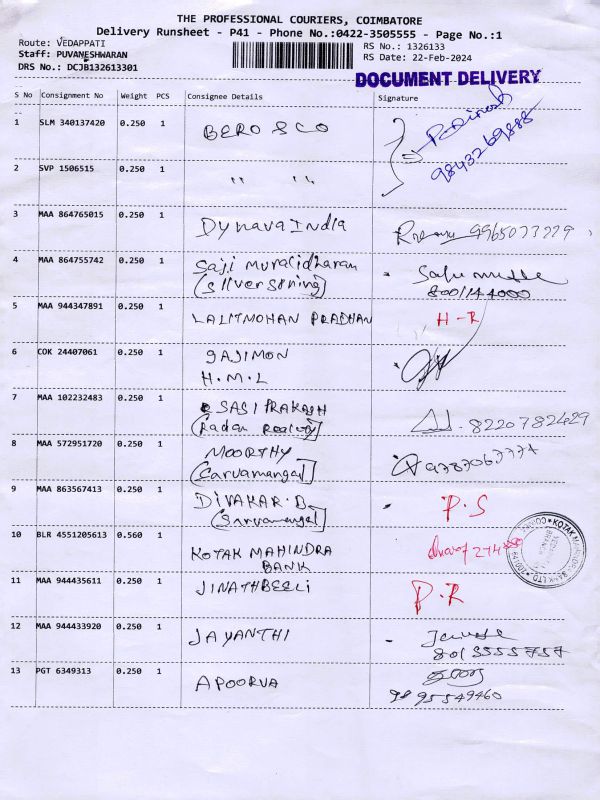 THE PROFESSIONAL COURIERS, COIMBATORE
Delivery Runsheet - P41 - Phone No.:0422-3505555 - Page No.:1
Route: VEDAPPATI
Staff: PUVANESHWARAN
DRS No.: DCJB132613301
RS No.: 1326133
RS Date: 22-Feb-2024
DOCUMENT DELIVERY
S No Consignment No Weight PCS Consignee Details Signature
1 SLM 340137420 0.250 1 BERO & CO 9843269888
2 SVP 1506515 0.250 1 " "
3 MAA 864765015 0.250 1 Dynava India 9965073229
4 MAA 864755742 0.250 1 Saji muralidharan
(Silver Shining) 8001144000
5 MAA 944347891 0.250 1 LALITMOHAN PRADHAN H-R
6 COK 24407061 0.250 1 SAJIMON
H.M.L
7 MAA 102232483 0.250 1 SASI PRAKASH 8220782429
(Radan Realty)
8 MAA 572951720 0.250 1 MOORTHY
(Sarvamangal)
9 MAA 863567413 0.250 1 DIVAKAR.B P.S
(Sarvamangal)
10 BLR 4551205613 0.560 1 KOTAK MAHINDRA
BANK
11 MAA 944435611 0.250 1 JINATHBEELI P.R
12 MAA 944433920 0.250 1 JAYANTHI
8015555757
13 PGT 6349313 0.250 1 APOORVA
9895549460